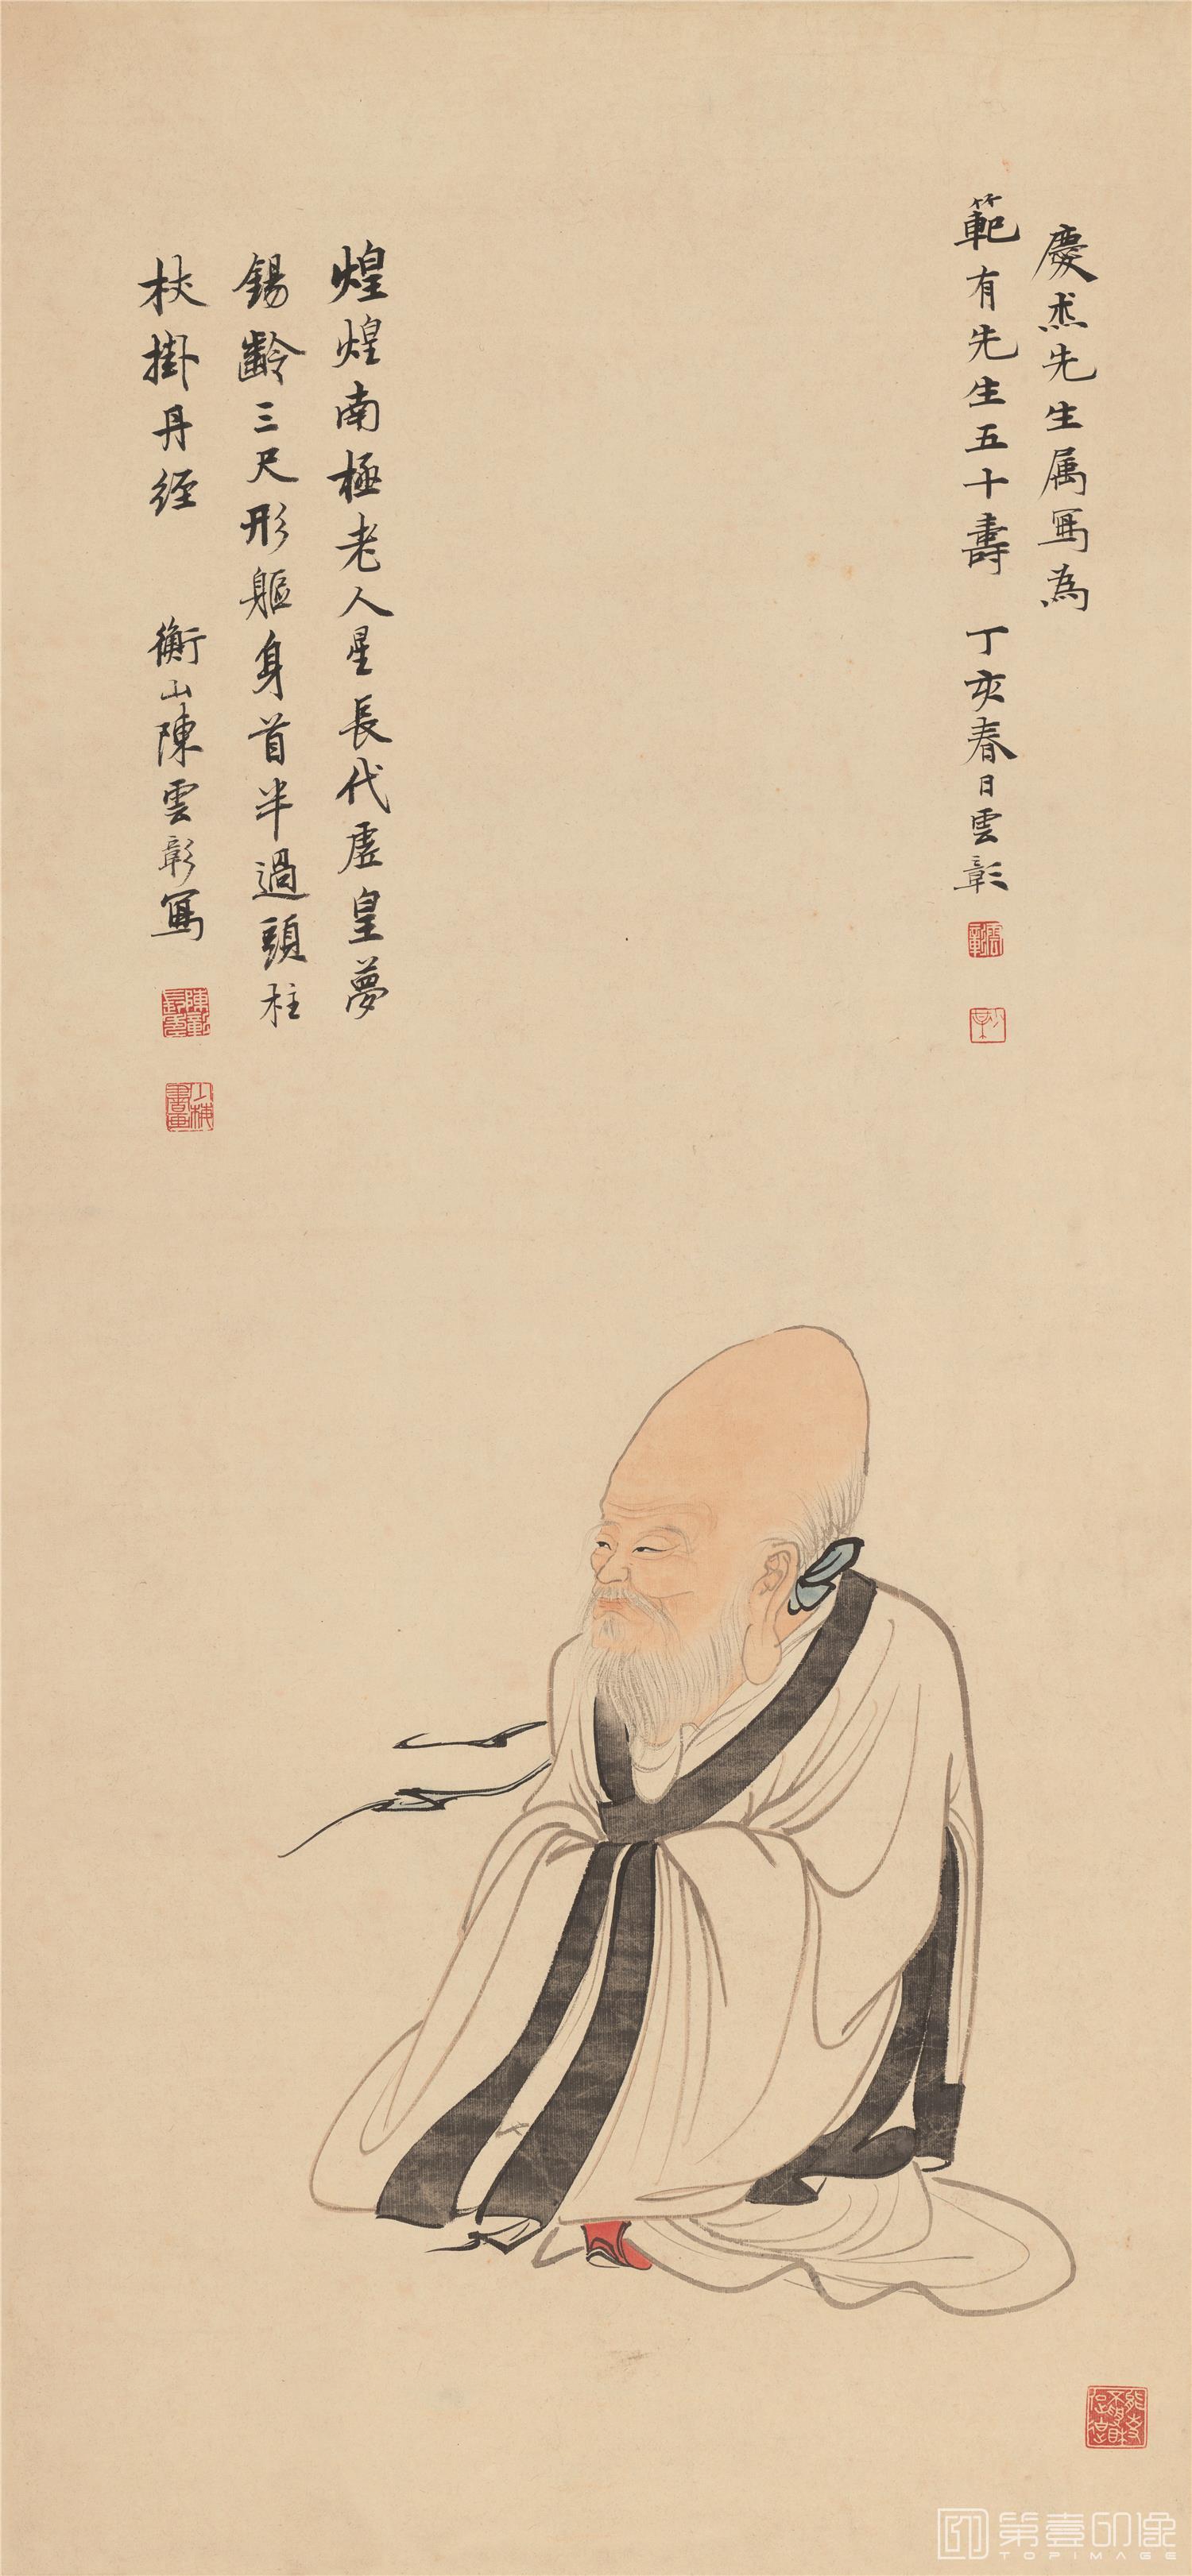 慶杰先生属寫為
範有先生五十壽 丁亥春日雲彰
煌煌南極老人星長代虛皇夢
錫齡三尺形軀身首半過頭柱
杖掛丹經 衡山陳雲彰寫
雲彰
陳雲彰
第壹印像
TOPIMAGE